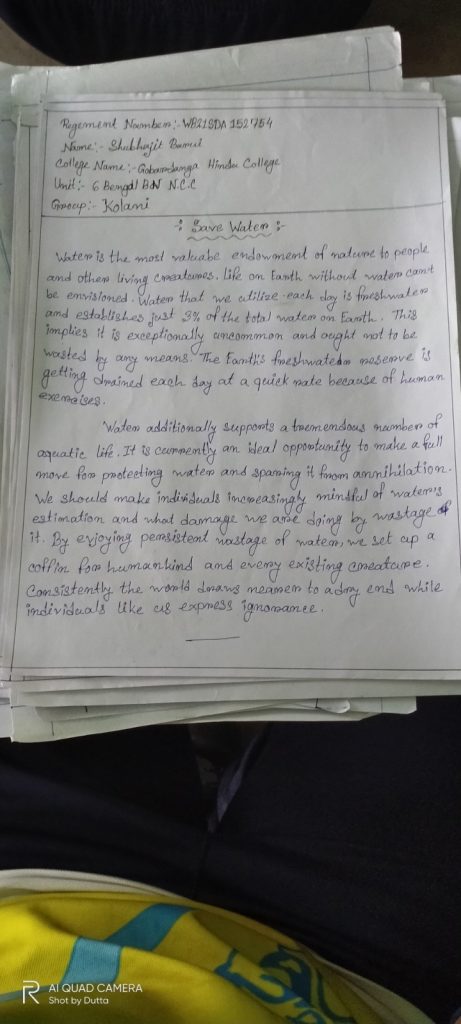 Regement Noumber:- WB21SDA 152754
Name:- Shubhajit
College Name:- Gobardanga Hindu College
Unit:- 6 Bengal BN N.C.C
Group:- Kolani
:- Save Water :-
Water is the most valuabe endowment of nature to people
and other living creatures. Life on Earth without water can't
be envisioned. Water that we utilize each day is freshwater
and establishes just 3% of the total water on Earth. This
implies it is exceptionally uncommon and ought not to be
wasted by any means. The Earth's freshwater reserve is
getting drained each day at a quick rate because of human
exercises.
Water additionally supports a tremendous number of
aquatic life. It is currently an ideal opportunity to make a full
move for protecting water and sparing it from annihilation.
We should make individuals increasingly mindful of water's
estimation and what damage we are doing by wastage of
it. By enjoying persistent wastage of water, we set up a
coffin for humankind and every existing creature.
Consistently the world draws nearer to a dry end while
individuals like us express ignorance.
AI QUAD CAMERA
Shot by Dutta